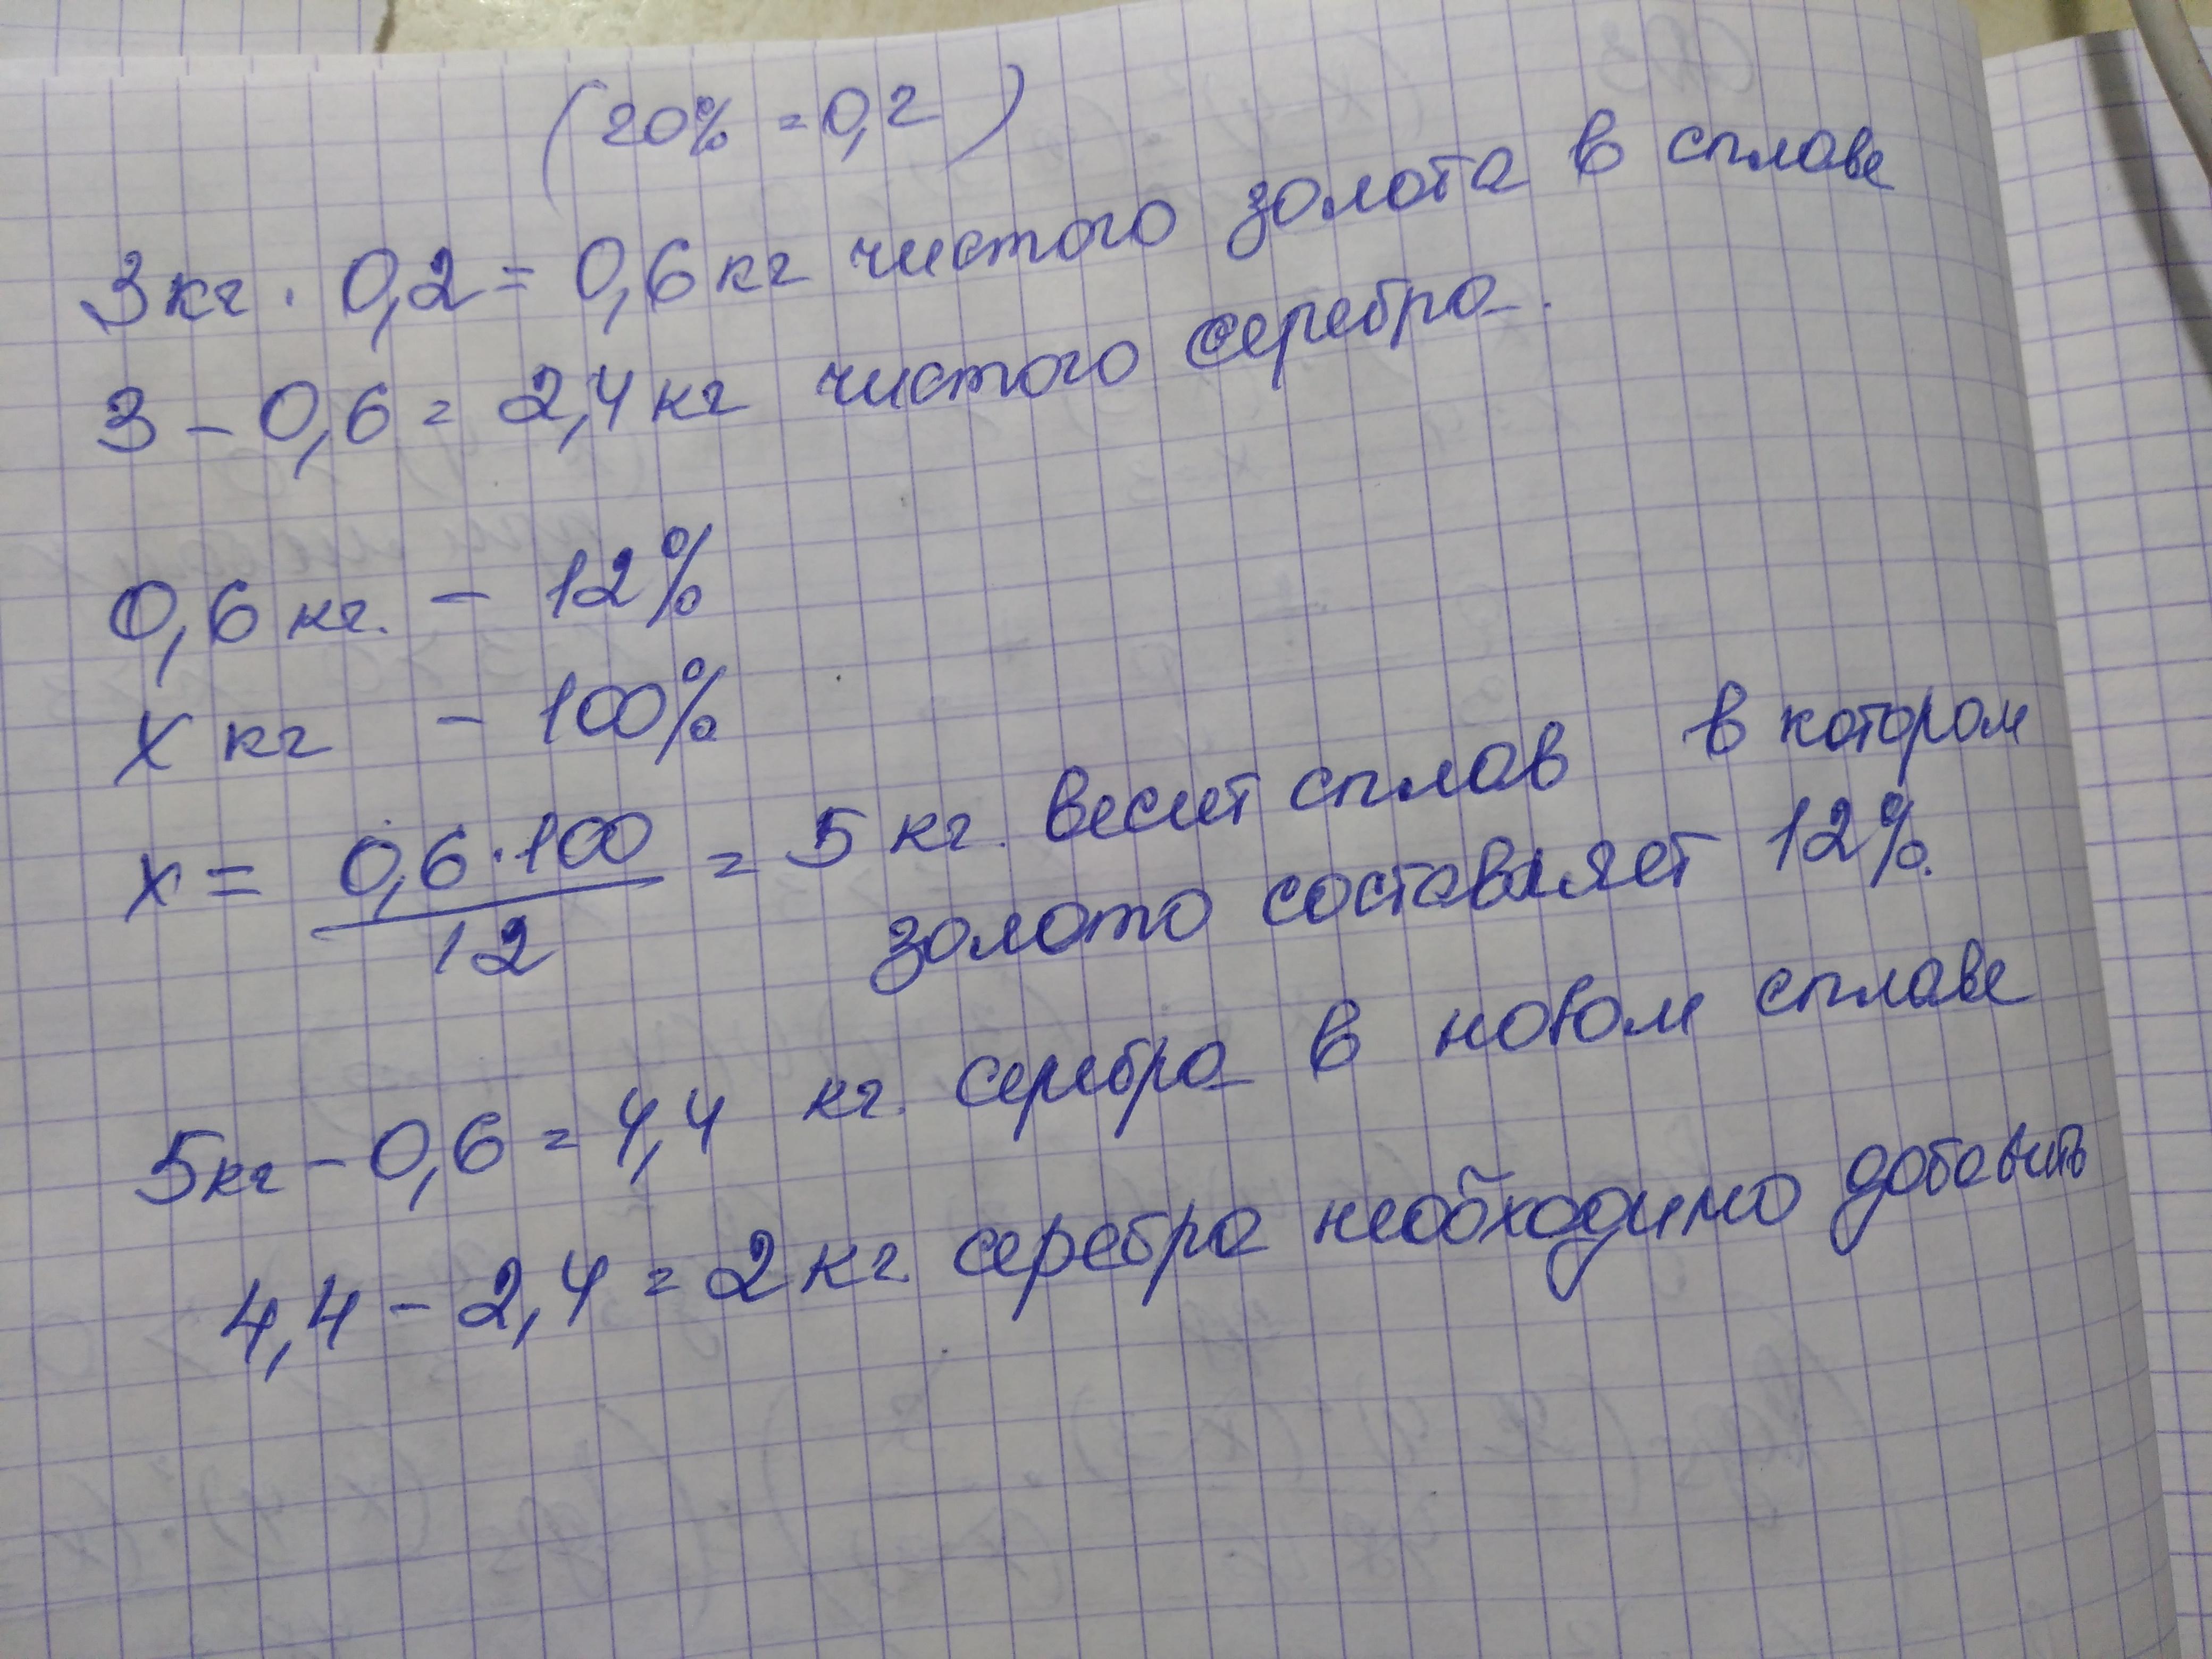 (20% = 0,2)
3кг · 0,2 = 0,6 кг чистого золота в сплаве
3 - 0,6 = 2,4 кг чистого серебра.
0,6 кг. - 12%
x кг - 100%
x = 0,6·100 / 12 = 5 кг. весит сплав в котором
золото составляет 12%.
5кг - 0,6 = 4,4 кг. серебра в новом сплаве
4,4 - 2,4 = 2 кг. серебра необходимо добавить